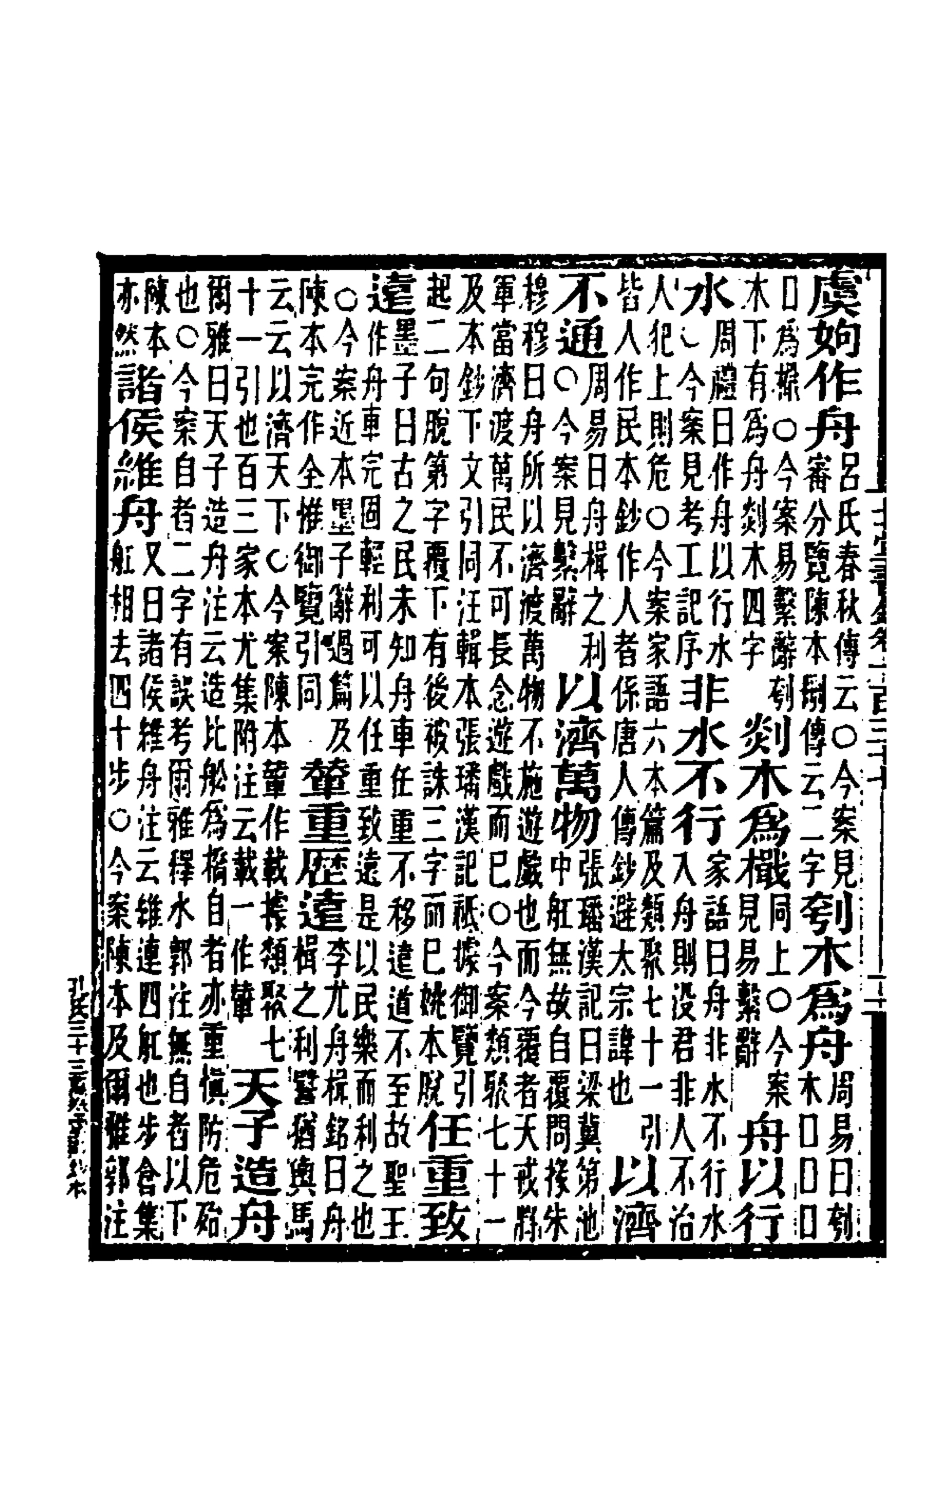 虞姁作舟呂氏春秋傳云○今案見審分覽陳本剮傳云二字刳木爲舟周易曰刳木口口口
口爲檝○今案易繫辭刳木下有爲舟剡木四字剡木爲檝同上○今案見易繫辭舟以行
水周禮曰作舟以行水○今案見考工記序非水不行家語曰舟非水不行水入舟則没君非人不治
人犯上則危○今案家語六本篇及類聚七十一引皆人作民本鈔作人者係唐人傳鈔避太宗諱也以濟
不通周易曰舟楫之利○今案見繫辭以濟萬物張璠漢記曰梁冀第池中舡無故自覆問掾朱
穆穆曰舟所以濟渡萬物不施遊戲也而今覆者天戒將軍當濟渡萬民不可長念遊戲而巳○今案類聚七十一
及本鈔下文引同汪輯本張璠漢記祗據御覽引起二句脫第字覆下有後被誅三字而巳姚本脫任重致
遠墨子曰古之民未知舟車任重不移遠道不至故聖王作舟車完固輕利可以任重致遠是以民樂而利之也
○今案近本墨子辭過篇及陳本完作全惟御覽引同輦重歷遠李尤舟楫銘曰舟楫之利譬猶輿馬
云云以濟天下○今案陳本輦作載據類聚七十一引也百三家本尤集附注云載一作輦天子造舟
爾雅曰天子造舟注云造比舩爲橋自者亦重愼防危殆也○今案自者二字有誤考爾雅釋水郭注無自者以下
陳本亦然諸侯維舟又曰諸侯維舟注云維連四舡也步會集舡相去四十步○今案陳本及爾雅郭注
孔氏三十三萬卷堂影鈔本